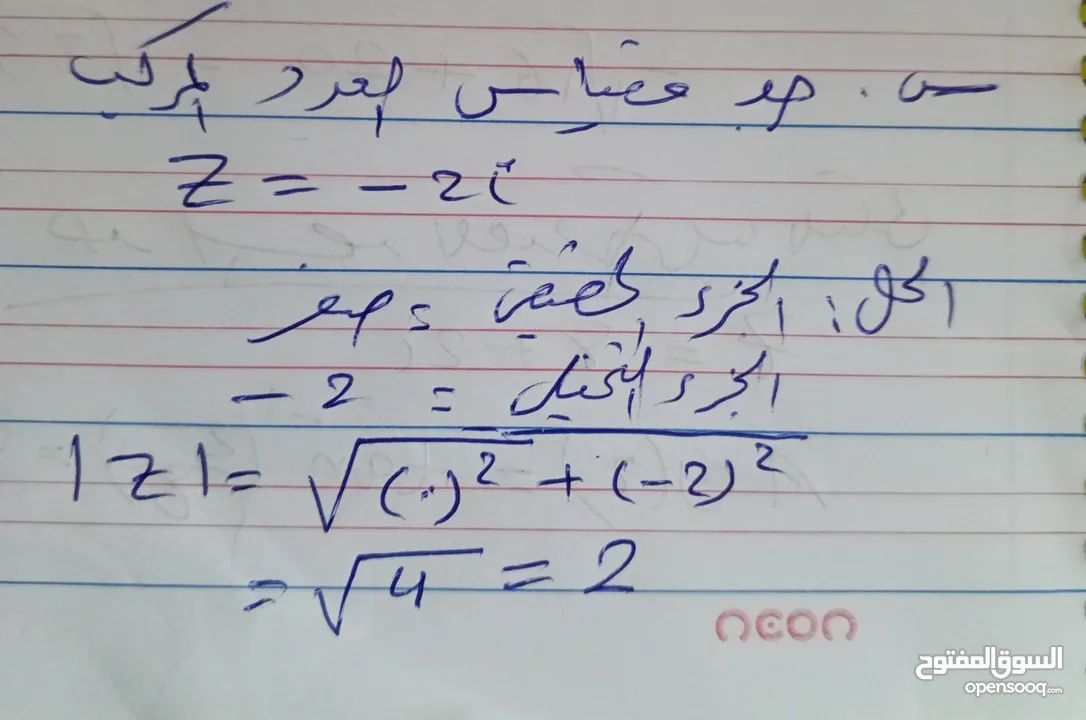 س. جد مقياس العدد المركب
Z = - 2i
الحل: الجزء الحقيقي = صفر
الجزء التخيلي = 2 -
|Z| = √(٠)² + (-2)²
= √4 = 2
neon
السوق المفتوح
opensooq.com